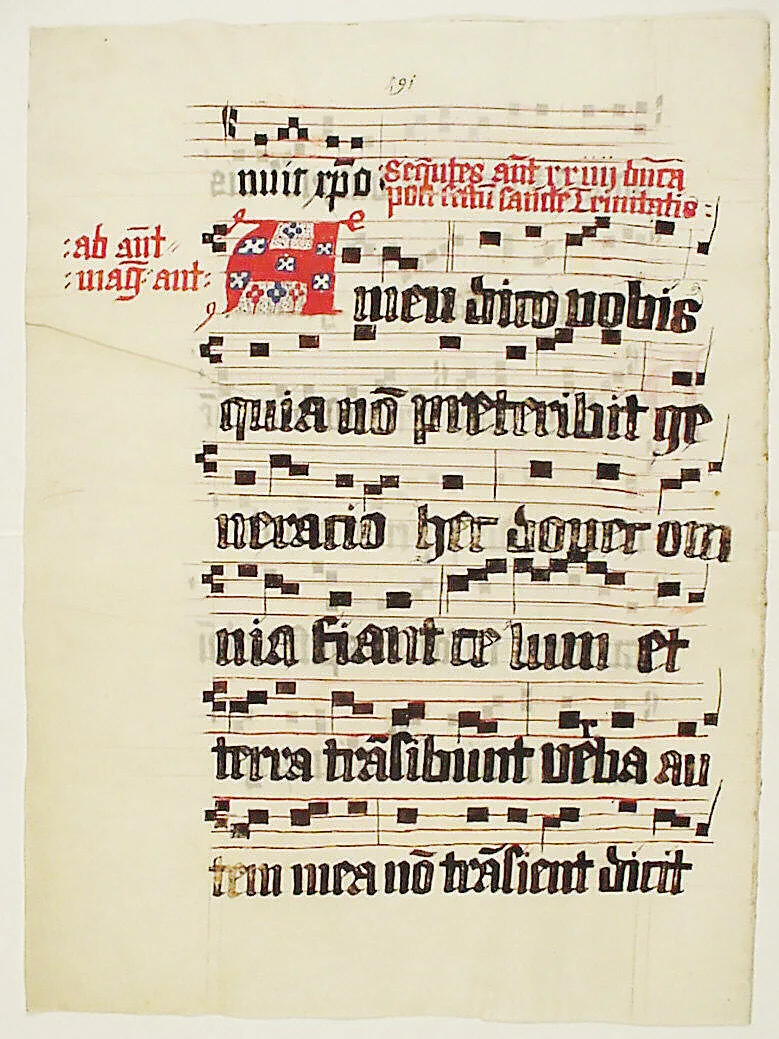 191
nuit xp̄o
Seqūtes an̄t xxiiij
post sancte Trinitatis
ab an̄t
maḡ ant
Amen dico vobis
quia nō preteribit ge
neracio hec donec om
nia fiant ce lum et
terra trāsibunt veʳba au
tem mea nō trāsient dicit